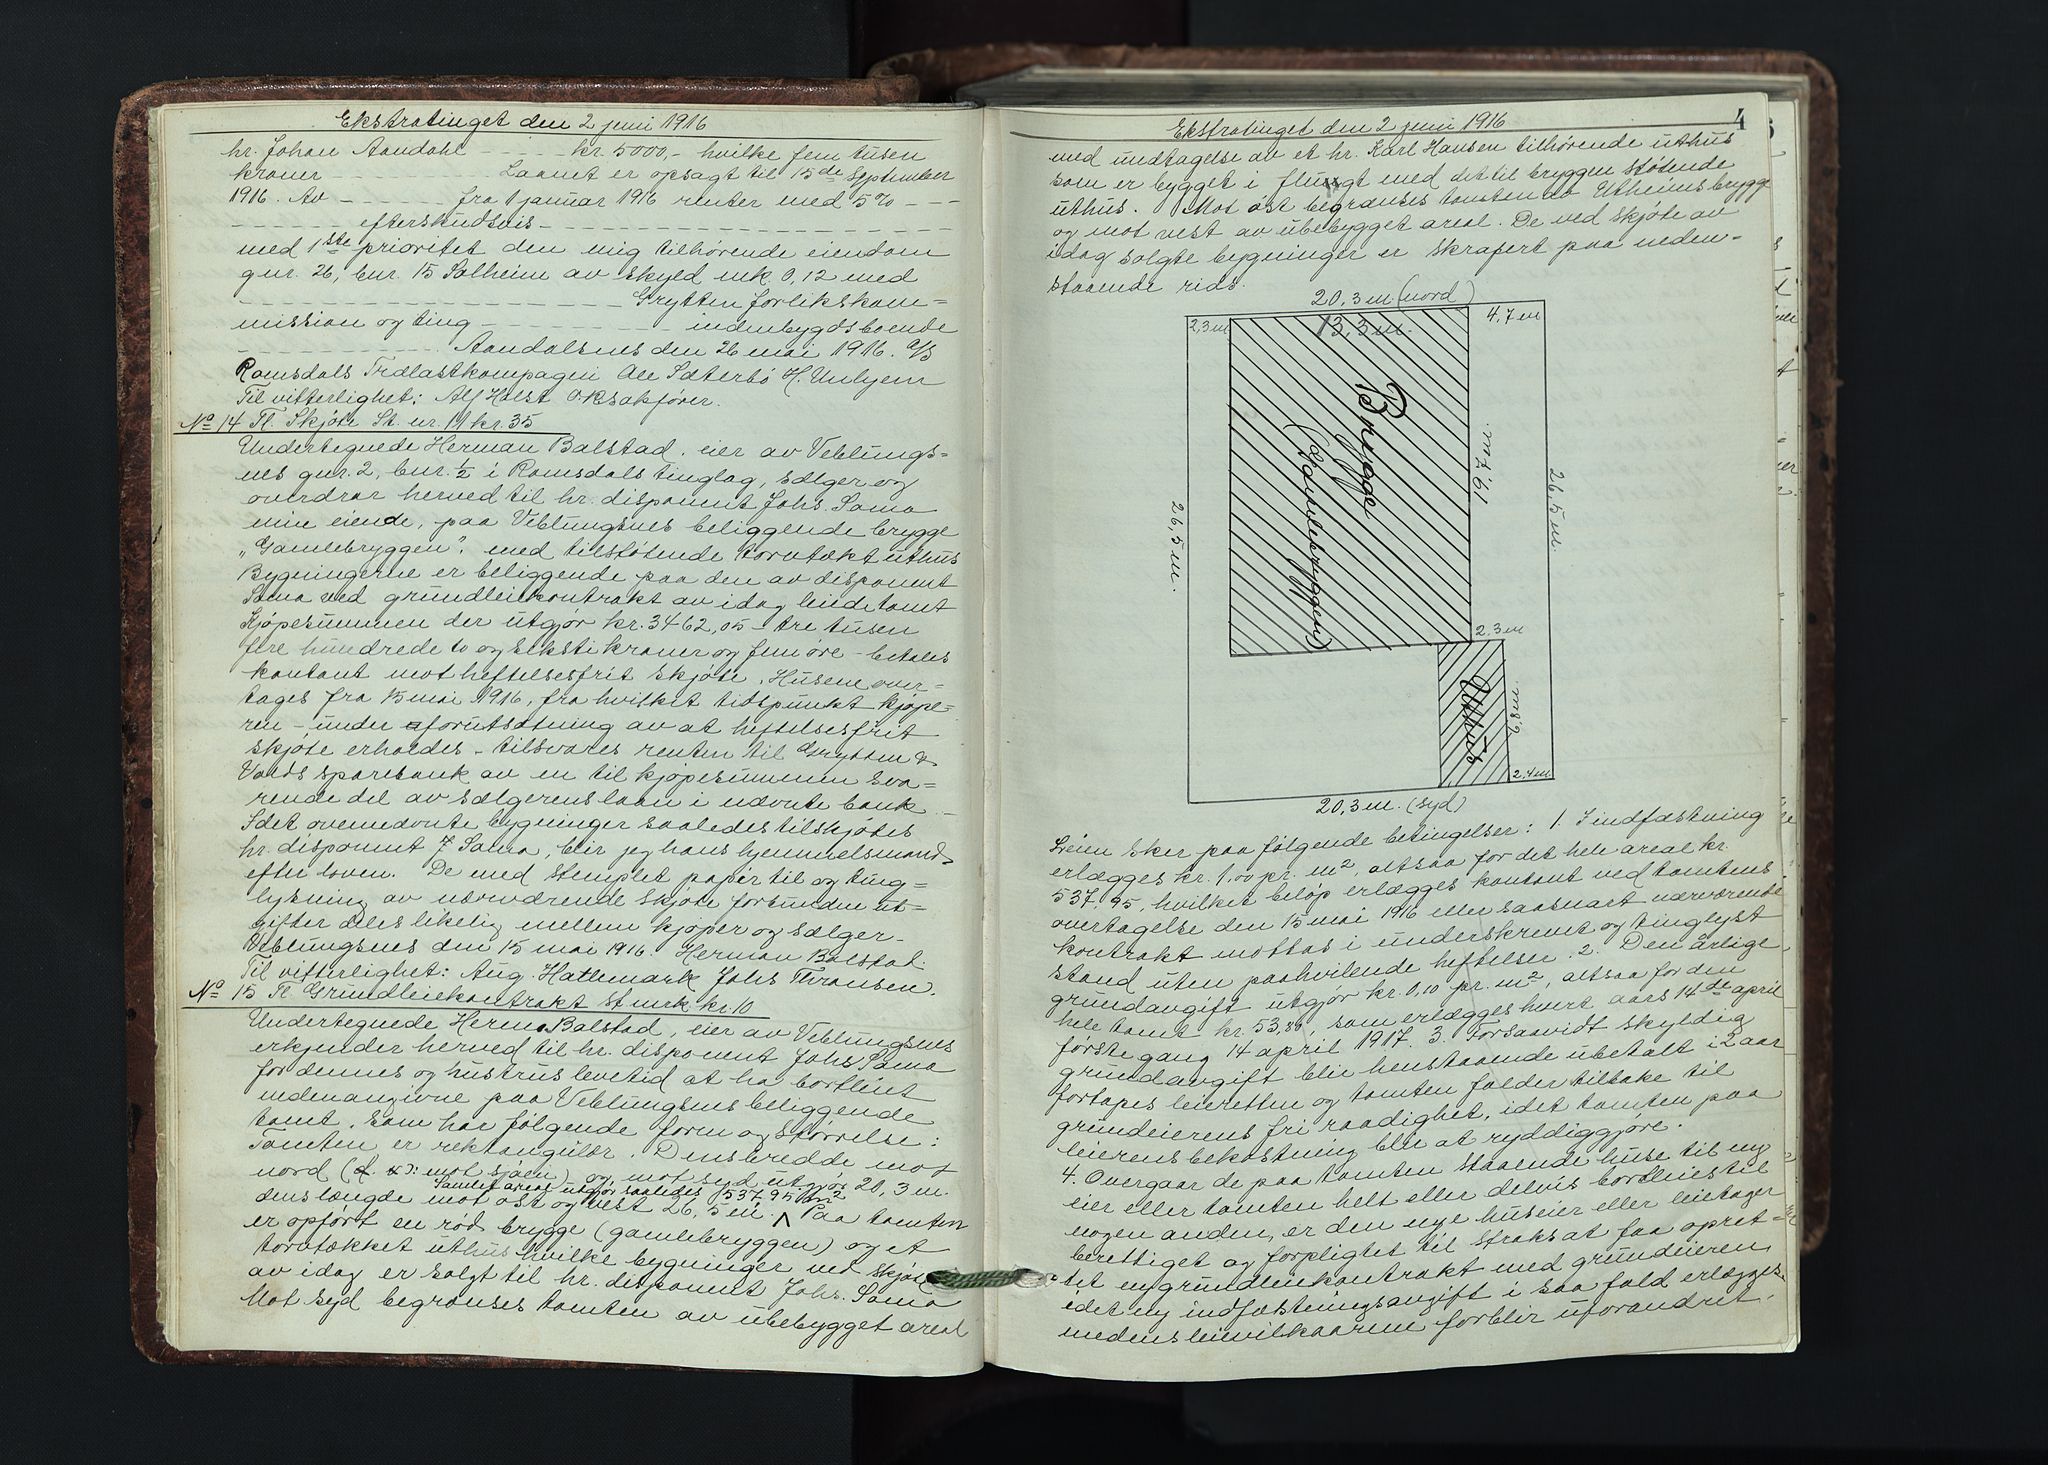 Ekstratinget den 2 juni 1916
hr. Johan Aandahl - - - - kr. 5000,- hvilke fem tusen
kroner - - - - Laanet er opsagt til 15de september
1916. Av - - - - fra 1 januar 1916 renter med 5% - - -
- - - - efterskudsvis - - - -
med 1ste prioritet den mig tilhørende eiendom
gnr. 26, bnr. 15 Solheim av skyld mk 0,12 med
- - - - Grytten forlikskom=
mission og ting - - - - indenbygdsboende
- - - - Aandalsnes den 26 mai 1916. A/S
Romsdals Trælastkompagni Ole Sæterbø H. Unhjem
Til vitterlighet: Alf Holst O.R.sakfører.
No 14 Tl. Skjøte St. nr. 11 kr. 35
Undertegnede Herman Balstad, eier av Veblungs=
nes gnr. 2, bnr. 1/2 i Romsdals tinglag, sælger og
overdrar herved til hr. disponent Johs. Sama
min eiende, paa Veblungsnes beliggende brygge
"Gamlebryggen", med tilstøtende torvtækt uthus
Bygningerne er beliggende paa den av disponent
Sama ved grundleiekontrakt av idag leiede tomt
Kjøpesummen der utgjør kr. 3462,05 - tre tusen
fire hundrede to og seksti kroner og fem øre - betales
kontant mot heftelsesfrit skjøte. Husene over=
tages fra 15 mai 1916, fra hvilket tidspunkt kjøpe=
ren - under forutsætning av at heftelsesfrit
skjøte erholdes - tilsvares renten til Grytten &
Voeds sparebank av en til kjøpesummen sva=
rende del av sælgerens laan i nævnte bank.
Idet ovennævnte bygninger saaledes tilskjøtes
hr. disponent J Sama, blir jeg hans hjemmelsmand
efter loven. De med stemplet papir til og ting=
lysning av nærværende skjøte forbundne ut=
gifter deles likelig mellem kjøper og sælger.
Veblungsnes den 15 mai 1916. Herman Balstad.
Til vitterlighet: Aug. Hattemark Johs Thransen.
No 15 Tl. Grundleiekontrakt st mrk kr. 10
Undertegnede Herm. Balstad, eier av Veblungsnes
erkjender herved til hr. disponent Johs Sama
for dennes og hustrus levetid at ha bortleiet
nedenangivne paa Veblungsnes beliggende
tomt, som har følgende form og størrelse:
Tomten er rektangulær. Dens bredde mot
nord (d. v.): mot sjøen) og mot syd utgjør 20,3 m.
Samlet areal utgjør saaledes 537,95 m2
dens længde mot øst og vest 26,5 m. ^ Paa tomten
er opført en rød brygge (gamlebryggen) og et
torvtækket uthus hvilke bygninger ved skjøte
av idag er solgt til hr. disponent Johs. Sama
Mot syd begrænses tomten av ubebygget areal
Ekstratinget den 2 juni 1916
4
med undtagelse av et hr. Karl Hansen tilhørende uthus
som er bygget i flugt med det til bryggen støtende
uthus. Mot øst begrænses tomten av Utheimsbrygge
og mot vest av ubebygget areal. De ved skjøte av
idag solgte bygninger er skrafert paa neden=
staaende rids.
20,3 m. (nord)
2,3 m
13,3 m.
4,7 m
Brygge
(Gamlebryggen)
19,7 m.
26,5 m.
26,5 m.
2,3 m
Uthus
2,4 m
20,3 m. (syd)
Leien sker paa følgende betingelser: 1. I indfæstning
erlægges kr. 1,00 pr. m2, altsaa for det hele areal kr.
537,95, hvilket beløp erlægges kontant ved tomtens
overtagelse den 15 mai 1916 eller saasnart nærværende
kontrakt mottas i underskrevet og tinglyst
stand uten paahvilende heftelser. 2. Den årlige
grundavgift utgjør kr. 0,10 pr. m2, altsaa for den
hele tomt kr. 53,80, som erlægges hvert aars 14de april
første gang 14 april 1917. 3. Forsaavidt skyldig
grundavgift blir henstaaende ubetalt i 2 aar
fortapes leieretten og tomten falder tilbake til
grundeierens fri raadighet, idet tomten paa
leierens bekostning blir at ryddiggjøre.
4. Overgaar de paa tomten staaende huse til ny
eier eller tomten helt eller delvis bortleies til
nogen anden, er den nye huseier eller leietager
berettiget og forpligtet til straks at faa opret=
tet ny grundleiekontrakt med grundeieren,
idet ny indfæstningsavgift i saa fald erlægges.
medens leievilkaarene forblir uforandret.